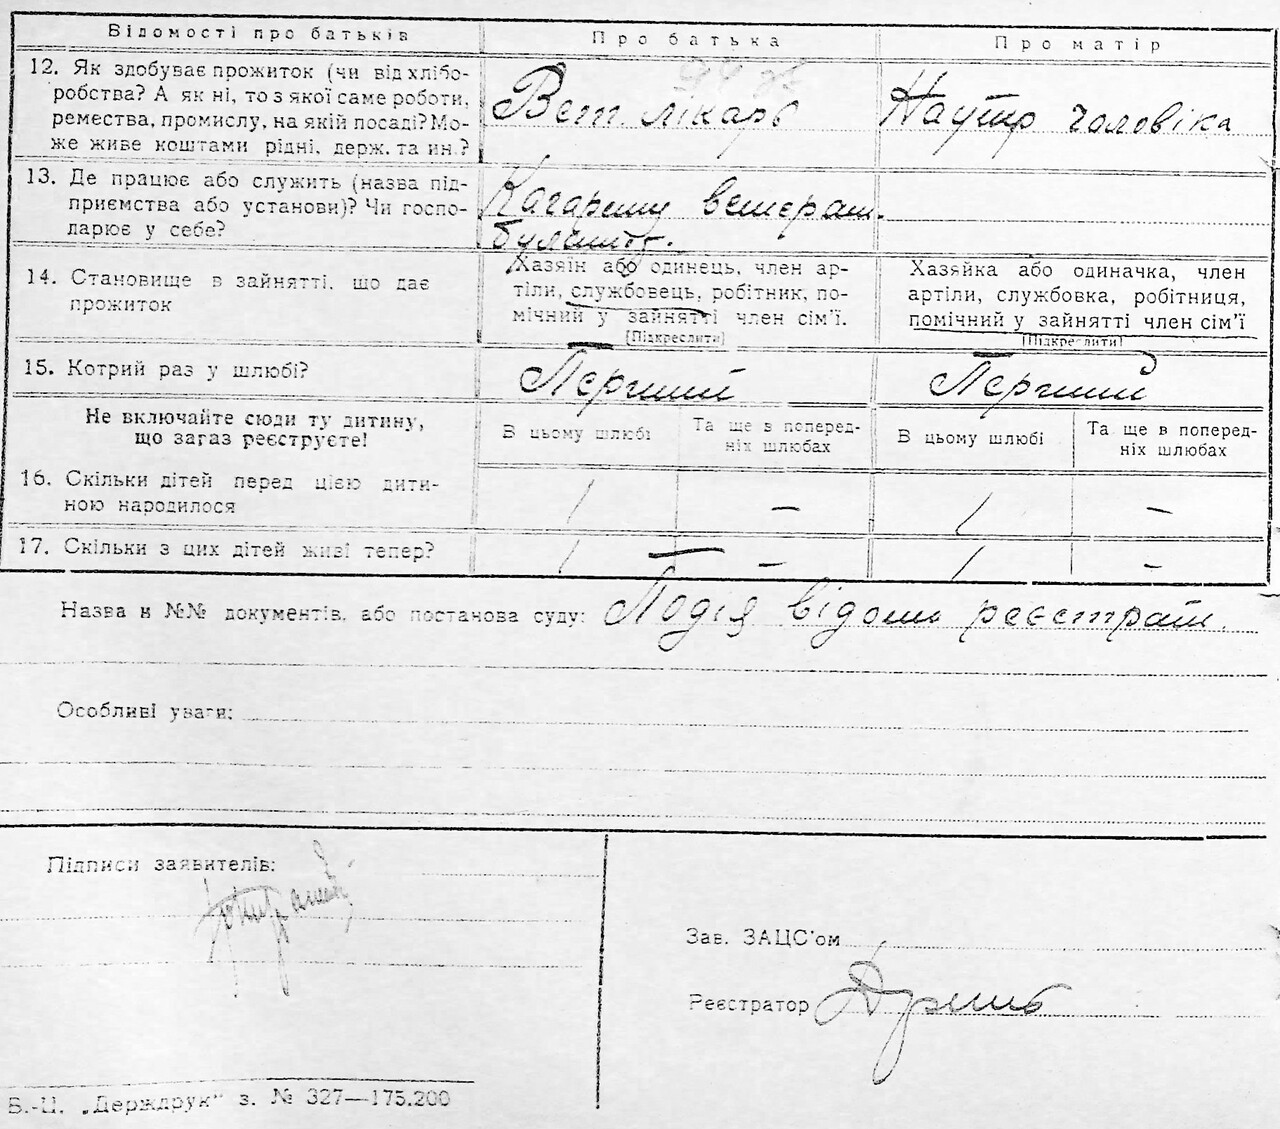 Відомості про батьків
Про батька
Про матір
12. Як здобуває прожиток (чи від хлібо-
робства? А як ні, то з якої саме роботи,
ремества, промислу, на якій посаді? Мо-
же живе коштами рідні, держ. та ин.?
Вет. лікарь
На утр чоловіка
13. Де працює або служить (назва під-
приємства або установи)? Чи госпо-
дарює у себе?
ветєрат.
14. Становище в зайнятті, що дає
прожиток
Хазяїн або одинець, член ар-
тіли, службовець, робітник, по-
мічний у зайнятті член сім'ї.
(Підкреслити)
Хазяйка або одиначка, член
артіли, службовка, робітниця,
помічний у зайнятті член сім'ї
(Підкреслити)
15. Котрий раз у шлюбі?
Перший
Перший
Не включайте сюди ту дитину,
що загаз реєструєте!
В цьому шлюбі
Та ще в поперед-
ніх шлюбах
В цьому шлюбі
Та ще в поперед-
ніх шлюбах
16. Скільки дітей перед цією дити-
ною народилося
1
–
1
–
17. Скільки з цих дітей живі тепер?
1
–
1
–
Назва и №№ документів, або постанова суду: Подія відома реєстрат.
Особливі уваги:
Підписи заявителів:
Зав. ЗАЦС'ом
Реєстратор
Б.-Ц. „Держдрук" з. № 327—175.200